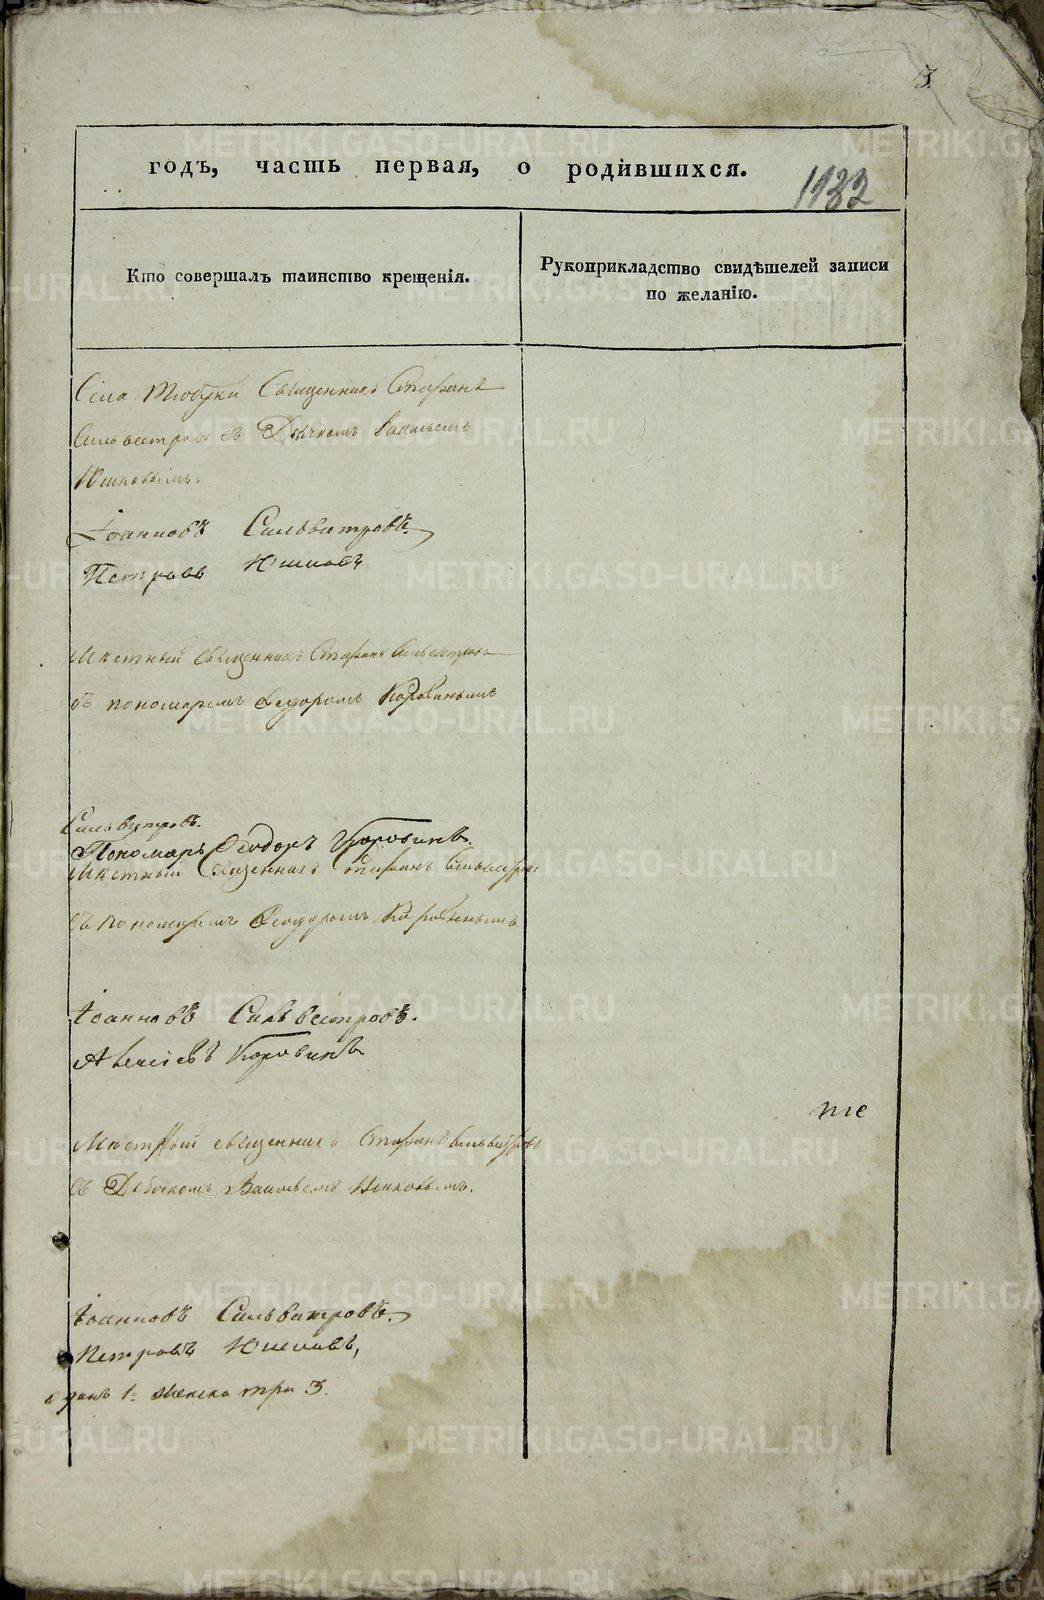 3.
годъ, часть первая, о родившихся.
1132
Кто совершалъ таинство крещенія.
Рукоприкладство свидѣтелей записи
по желанію.
Села Тюбуки Священникъ Стефанъ
Сильвестровъ съ Дьячкомъ Васильемъ
Юшковымъ.
Іоанновъ Сильвестровъ.
Петровъ Юшковъ
Мѣстный священникъ Стефанъ Сильвестровъ
съ пономаремъ Ѳедоромъ Коровинымъ
Сильвестровъ.
Пономарь Ѳеодоръ Коровинъ.
Мѣстный Священникъ Стефанъ Сильвестровъ
съ пономаремъ Ѳеодоромъ Коровинымъ
Іоанновъ Сильвестровъ.
Алексіевъ Коровинъ
Мѣстный священникъ Стефанъ Сильвестровъ
съ Дьячкомъ Васильемъ Юшковымъ.
Іоанновъ Сильвестровъ.
Петровъ Юшковъ,
1. женска три 3.
METRIKI.GASO-URAL.RU